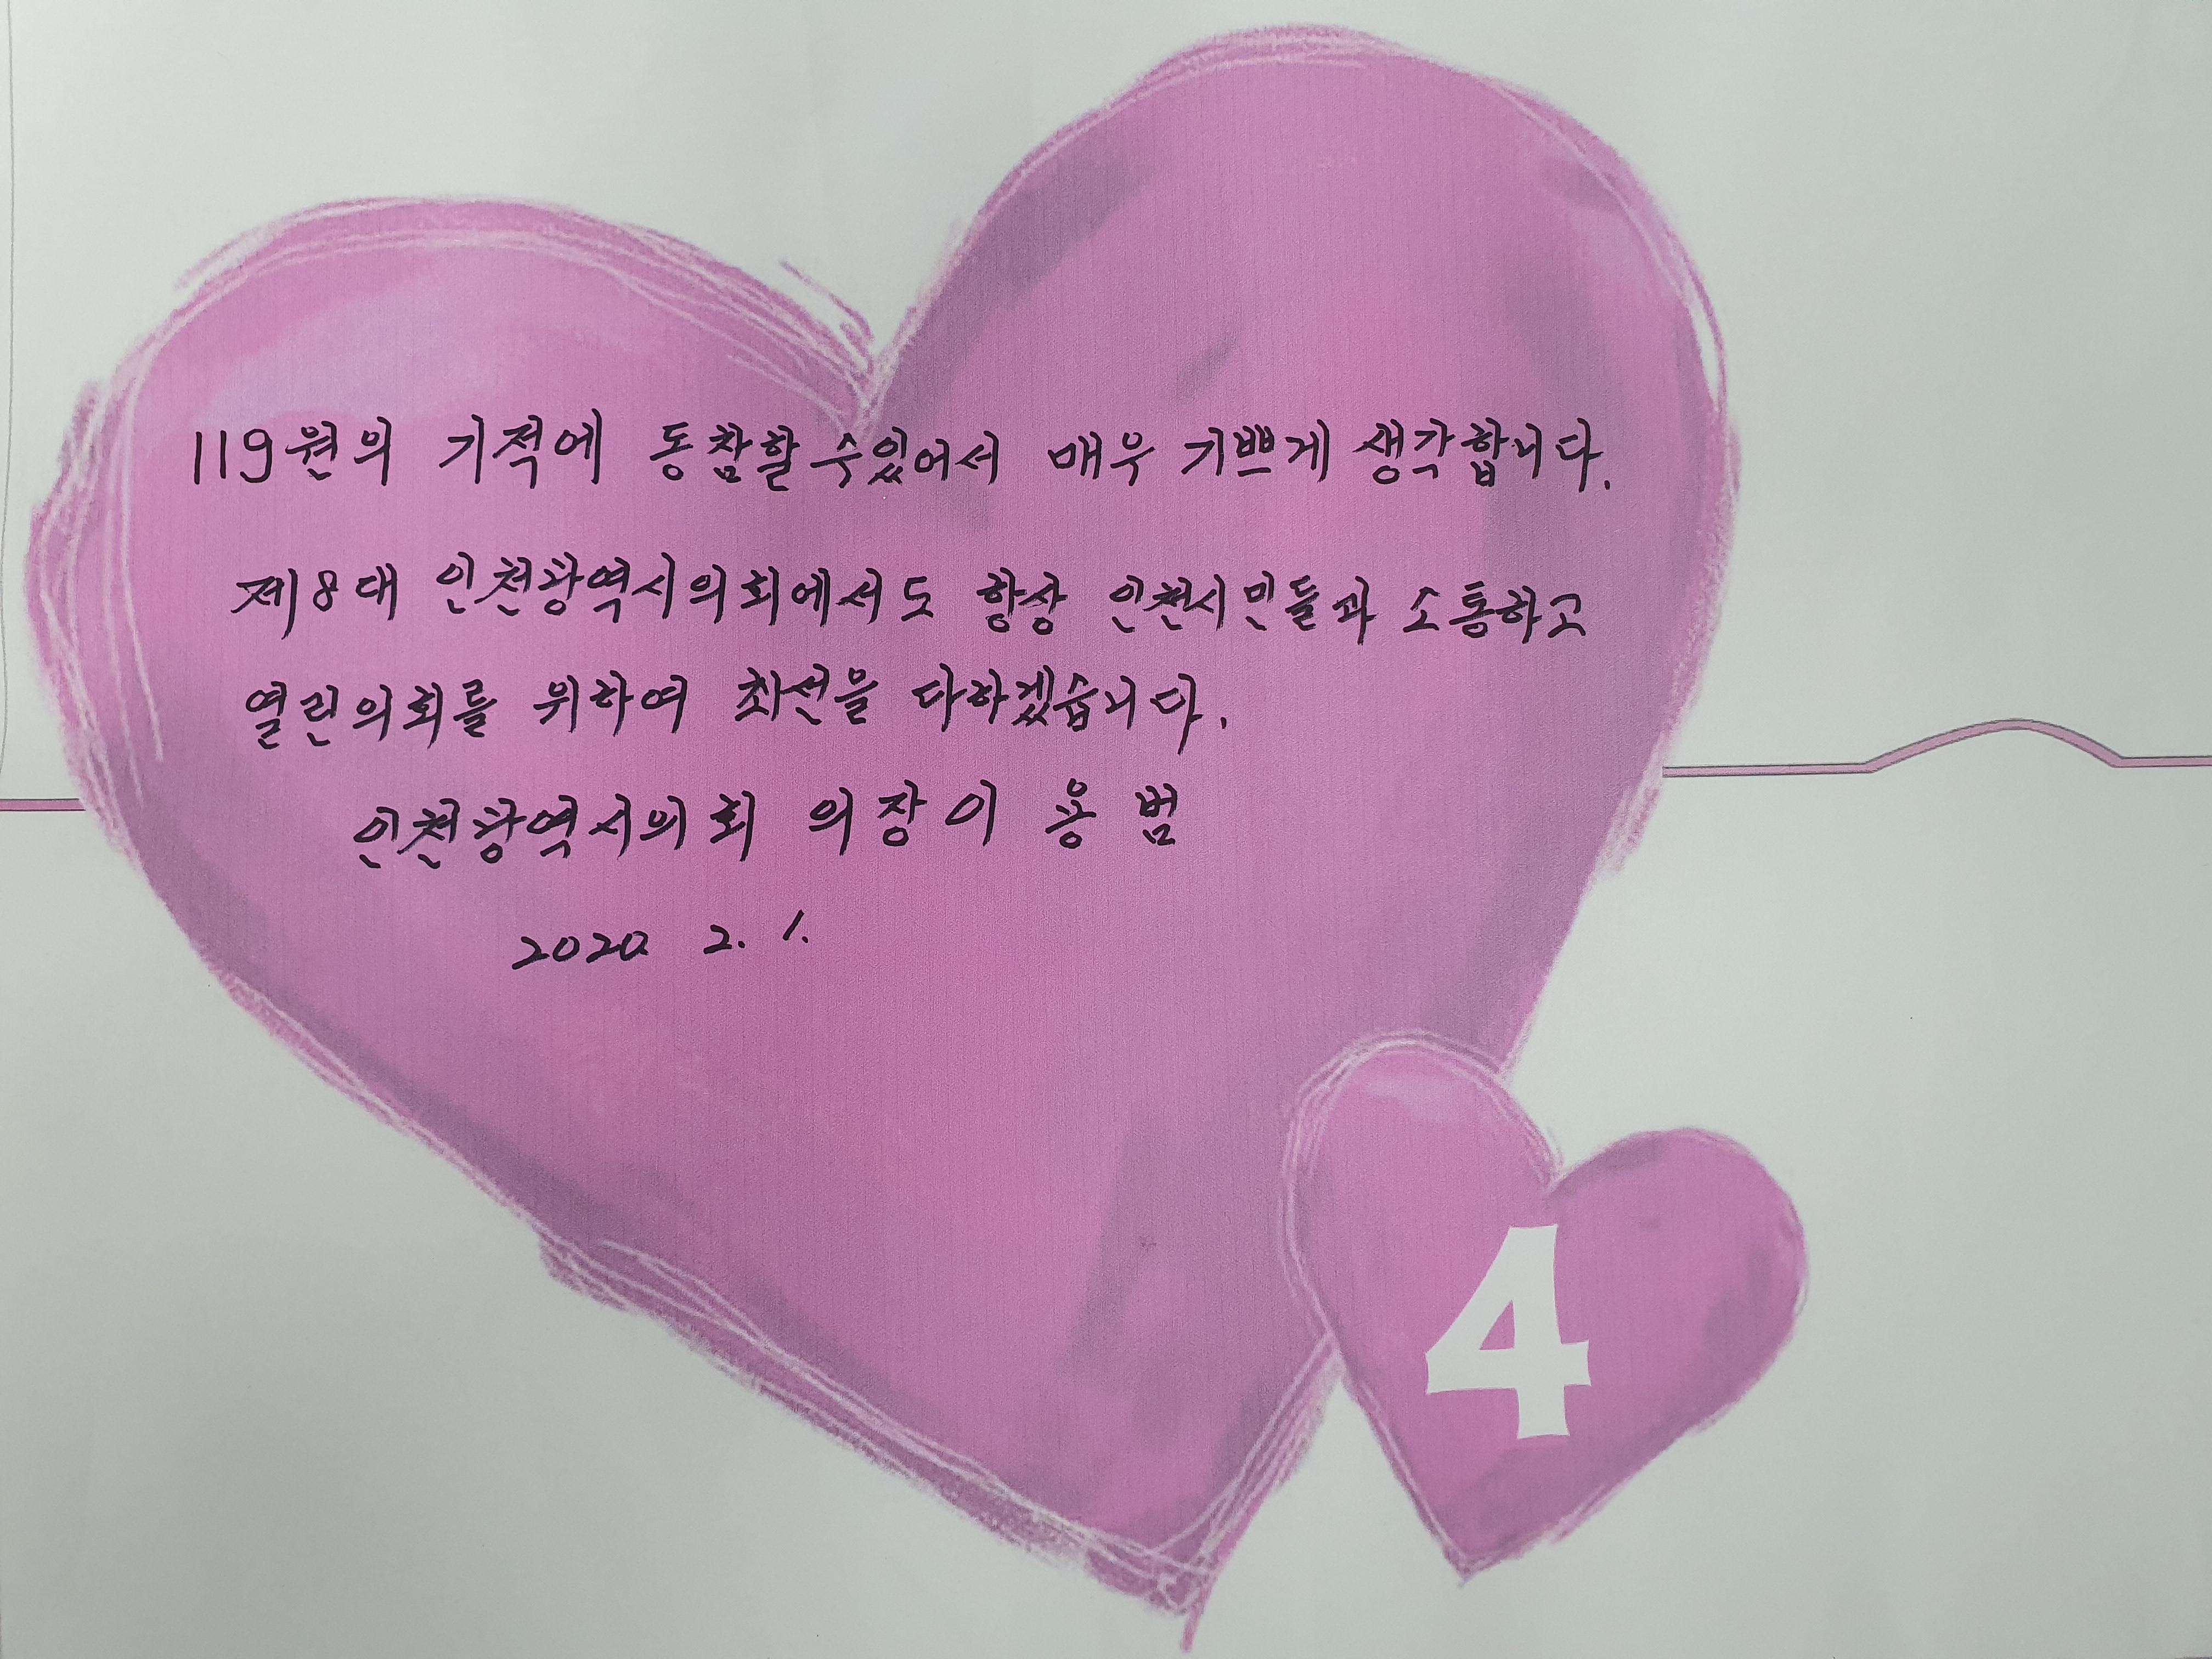 119원의 기적에 동참할 수있어서 매우 기쁘게 생각합니다.
제8대 인천광역시의회에서도 항상 인천시민들과 소통하고
열린의회를 위하여 최선을 다하겠습니다.
인천광역시의회 의장 이 용 범
2020. 2. 1.
4